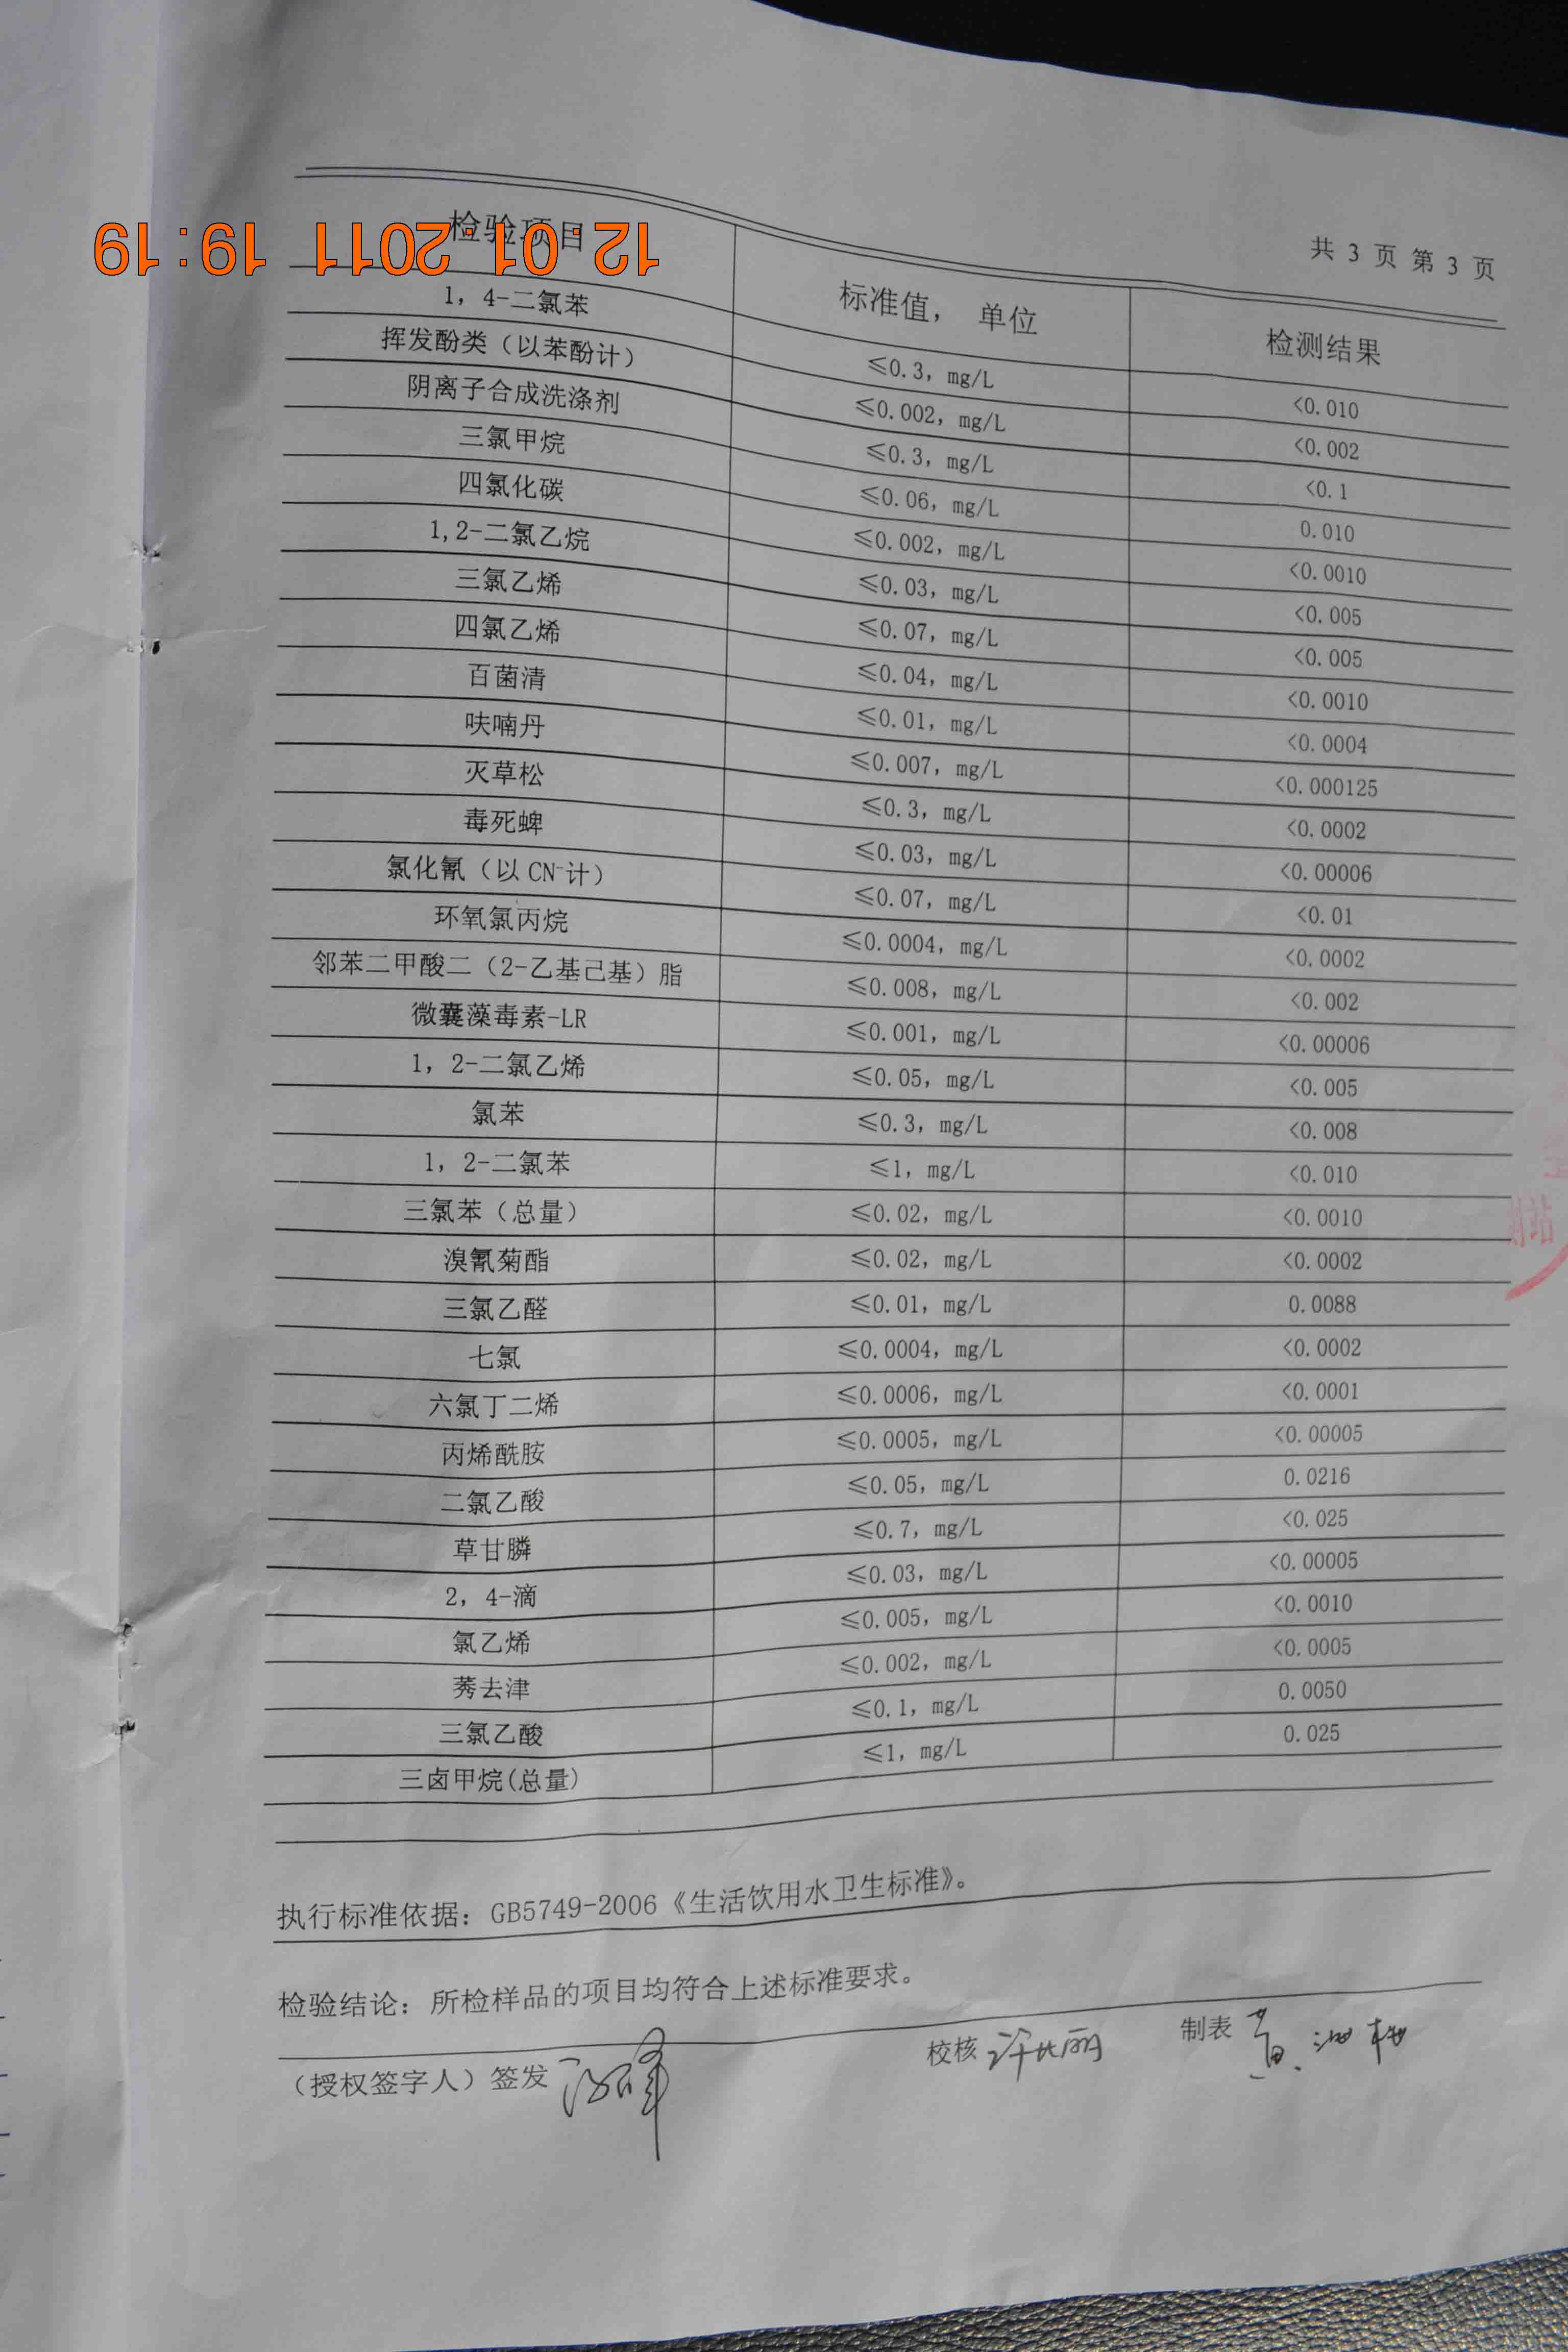 共 3 页 第 3 页
12.01.2011 19:19
检验项目 标准值, 单位 检测结果
1, 4-二氯苯 ≤0.3, mg/L <0.010
挥发酚类（以苯酚计） ≤0.002, mg/L <0.002
阴离子合成洗涤剂 ≤0.3, mg/L <0.1
三氯甲烷 ≤0.06, mg/L 0.010
四氯化碳 ≤0.002, mg/L <0.0010
1,2-二氯乙烷 ≤0.03, mg/L <0.005
三氯乙烯 ≤0.07, mg/L <0.005
四氯乙烯 ≤0.04, mg/L <0.0010
百菌清 ≤0.01, mg/L <0.0004
呋喃丹 ≤0.007, mg/L <0.000125
灭草松 ≤0.3, mg/L <0.0002
毒死蜱 ≤0.03, mg/L <0.00006
氯化氰（以 CN⁻计） ≤0.07, mg/L <0.01
环氧氯丙烷 ≤0.0004, mg/L <0.0002
邻苯二甲酸二（2-乙基己基）脂 ≤0.008, mg/L <0.002
微囊藻毒素-LR ≤0.001, mg/L <0.00006
1, 2-二氯乙烯 ≤0.05, mg/L <0.005
氯苯 ≤0.3, mg/L <0.008
1, 2-二氯苯 ≤1, mg/L <0.010
三氯苯（总量） ≤0.02, mg/L <0.0010
溴氰菊酯 ≤0.02, mg/L <0.0002
三氯乙醛 ≤0.01, mg/L 0.0088
七氯 ≤0.0004, mg/L <0.0002
六氯丁二烯 ≤0.0006, mg/L <0.0001
丙烯酰胺 ≤0.0005, mg/L <0.00005
二氯乙酸 ≤0.05, mg/L 0.0216
草甘膦 ≤0.7, mg/L <0.025
2, 4-滴 ≤0.03, mg/L <0.00005
氯乙烯 ≤0.005, mg/L <0.0010
莠去津 ≤0.002, mg/L <0.0005
三氯乙酸 ≤0.1, mg/L 0.0050
三卤甲烷(总量) ≤1, mg/L 0.025
执行标准依据: GB5749-2006《生活饮用水卫生标准》。
检验结论: 所检样品的项目均符合上述标准要求。
（授权签字人）签发 校核 制表
测站